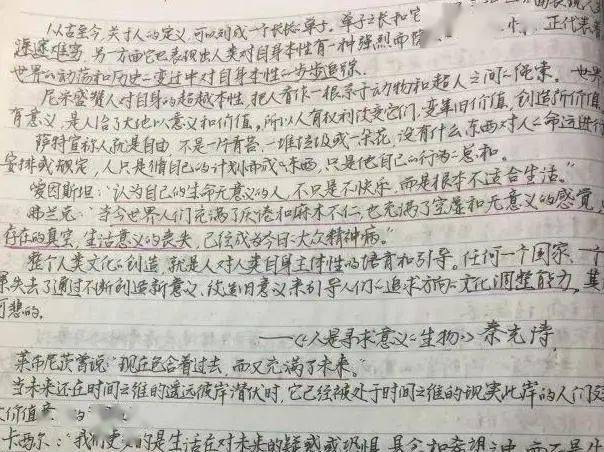 从古至今，关于人的定义，可以列成一个长长的单子。单子之长和它
深邃难穷，另一方面它也表现出人类对自身本性有一种强烈而
世界的动荡和历史的变迁中对自身本性的步步追踪。
尼采盛赞人对自身的超越本性，把人看作一根系于动物和超人之间的绳索。
有意义，是人给了大地以意义和价值，所以人有权利改变它们，变革旧价值，创造新价值
萨特宣称人就是自由，不是一片青苔，一堆垃圾或一朵花，没有什么东西对人的命运进行
安排或规定，人只是循自己的计划而成的东西，只是他自己的行为的总和。
爱因斯坦："认为自己的生命无意义的人，不只是不快乐，而是根本不适合生活。"
弗兰克："当今世界人们充满了厌倦和麻木不仁，也充满了空虚和无意义的感觉，
存在的真空，生活意义的丧失，已经成为今日的大众精神病。"
整个人类文化的创造，就是人对人类自身主体性的培育和引导。任何一个国家、一个
果失去了通过不断创造新意义、改造旧意义来引导人们的追求方向的文化调整能力，其
可悲的。
——《人是寻求意义的生物》秦光涛
莱布尼茨曾说"现在包含着过去，而又充满了未来。"
当未来还在时间之维的遥远彼岸潜伏时，它已经被处于时间之维的现实此岸的人们
价值
卡西尔："我们更多的是生活在对未来的疑惑或恐惧、悬念和希望之中，而不是